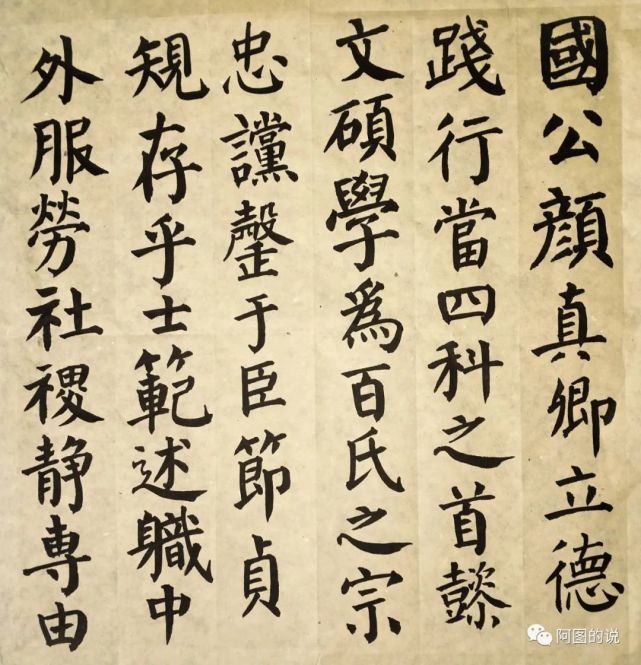 國公顔真卿立德
踐行當四科之首懿
文碩學爲百氏之宗
忠讜罄于臣節貞
規存乎士範述職中
外服勞社稷静専由
阿图的说